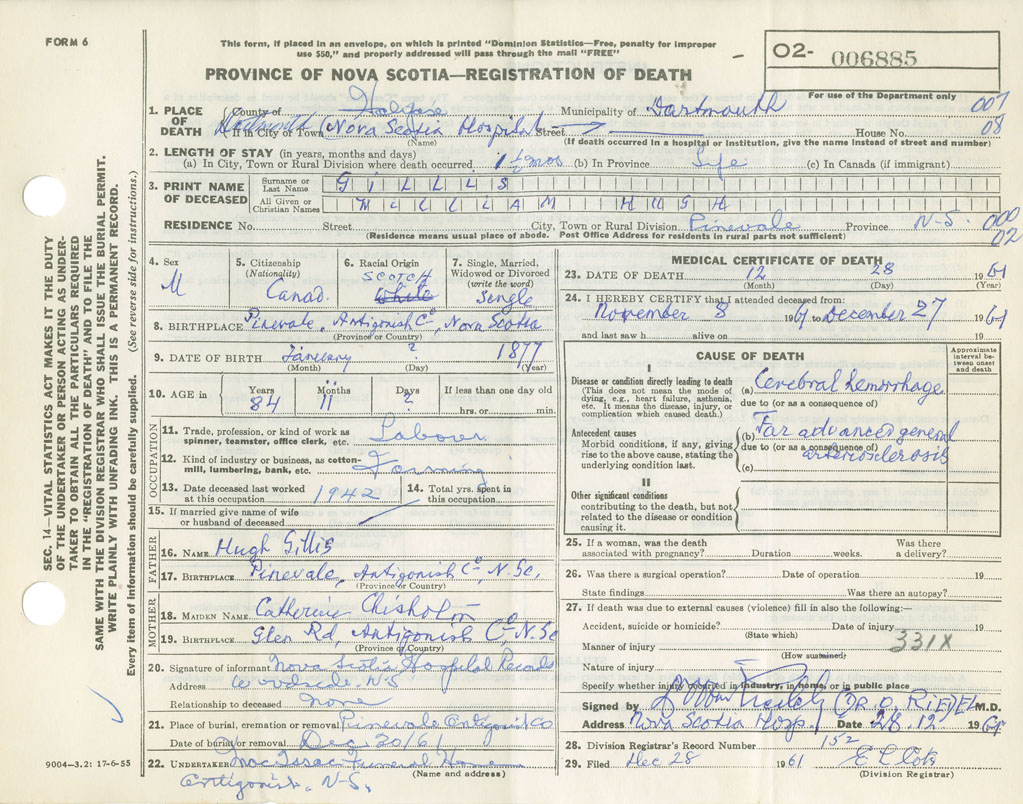 FORM 6
This form, if placed in an envelope, on which is printed "Dominion Statistics—Free, penalty for improper
use $50," and properly addressed will pass through the mail "FREE"
PROVINCE OF NOVA SCOTIA—REGISTRATION OF DEATH
O2- 006885
For use of the Department only
007
08
1. PLACE OF DEATH County of Halifax Municipality of Dartmouth
Dartmouth If in City or Town (Nova Scotia Hospital Street House No.
(Name) (If death occurred in a hospital or institution, give the name instead of street and number)
2. LENGTH OF STAY (in years, months and days)
(a) In City, Town or Rural Division where death occurred 1 ½ mos (b) In Province Life (c) In Canada (if immigrant)
3. PRINT NAME OF DECEASED
Surname or Last Name GILLIS
All Given or Christian Names WILLIAM HUGH
RESIDENCE No. Street City, Town or Rural Division Pinevale Province N-S. 000
02
(Residence means usual place of abode. Post Office Address for residents in rural parts not sufficient)
4. Sex M
5. Citizenship (Nationality) Canad.
6. Racial Origin SCOTCH White
7. Single, Married, Widowed or Divorced (write the word) Single
8. BIRTHPLACE Pinevale, Antigonish Co, Nova Scotia
(Province or Country)
9. DATE OF BIRTH January ? 1877
(Month) (Day) (Year)
10. AGE in Years 84 Months 11 Days ? If less than one day old hrs. or min.
OCCUPATION
11. Trade, profession, or kind of work as spinner, teamster, office clerk, etc. Labour
12. Kind of industry or business, as cotton-mill, lumbering, bank, etc. Farming
13. Date deceased last worked at this occupation 1942
14. Total yrs. spent in this occupation
15. If married give name of wife or husband of deceased
FATHER
16. NAME Hugh Gillis
17. BIRTHPLACE Pinevale, Antigonish Co, N. Sc.
(Province or Country)
MOTHER
18. MAIDEN NAME Catherine Chisholm
19. BIRTHPLACE Glen Rd, Antigonish Co N. Sc
(Province or Country)
20. Signature of informant Nova Scotia Hospital Records
Address Woodside. N-S
Relationship to deceased None
21. Place of burial, cremation or removal Pinevale Antigonish Co
Date of burial or removal Dec 30/61
22. UNDERTAKER MacIsaac Funeral Home
(Name and address)
Antigonish, N-S.
MEDICAL CERTIFICATE OF DEATH
23. DATE OF DEATH 12 28 1961
(Month) (Day) (Year)
24. I HEREBY CERTIFY that I attended deceased from:
November 8 1961 to December 27 1961
and last saw h alive on 19
CAUSE OF DEATH
Approximate interval between onset and death
I
Disease or condition directly leading to death
(This does not mean the mode of dying, e.g., heart failure, asthenia, etc. It means the disease, injury, or complication which caused death.)
(a) Cerebral hemorrhage
due to (or as a consequence of)
Antecedent causes
Morbid conditions, if any, giving rise to the above cause, stating the underlying condition last.
(b) Far advanced general
due to (or as a consequence of)
arteriosclerosis
(c)
II
Other significant conditions
contributing to the death, but not related to the disease or condition causing it.
25. If a woman, was the death associated with pregnancy? Duration weeks. Was there a delivery?
26. Was there a surgical operation? Date of operation 19
State findings Was there an autopsy?
27. If death was due to external causes (violence) fill in also the following:—
Accident, suicide or homicide? Date of injury 19
(State which)
331X
Manner of injury
(How sustained)
Nature of injury
Specify whether injury occurred in industry, in home, or in public place
Signed by (DR. O. RIEDEL M.D.
Address Nova Scotia Hosp. Date 28. 12 1961
28. Division Registrar's Record Number 152
29. Filed Dec 28 1961
(Division Registrar)
SEC. 14—VITAL STATISTICS ACT MAKES IT THE DUTY
OF THE UNDERTAKER OR PERSON ACTING AS UNDER-
TAKER TO OBTAIN ALL THE PARTICULARS REQUIRED
IN THE "REGISTRATION OF DEATH" AND TO FILE THE
SAME WITH THE DIVISION REGISTRAR WHO SHALL ISSUE THE BURIAL PERMIT.
WRITE PLAINLY WITH UNFADING INK. THIS IS A PERMANENT RECORD.
Every item of information should be carefully supplied. (See reverse side for instructions.)
9004—3.2: 17-6-55